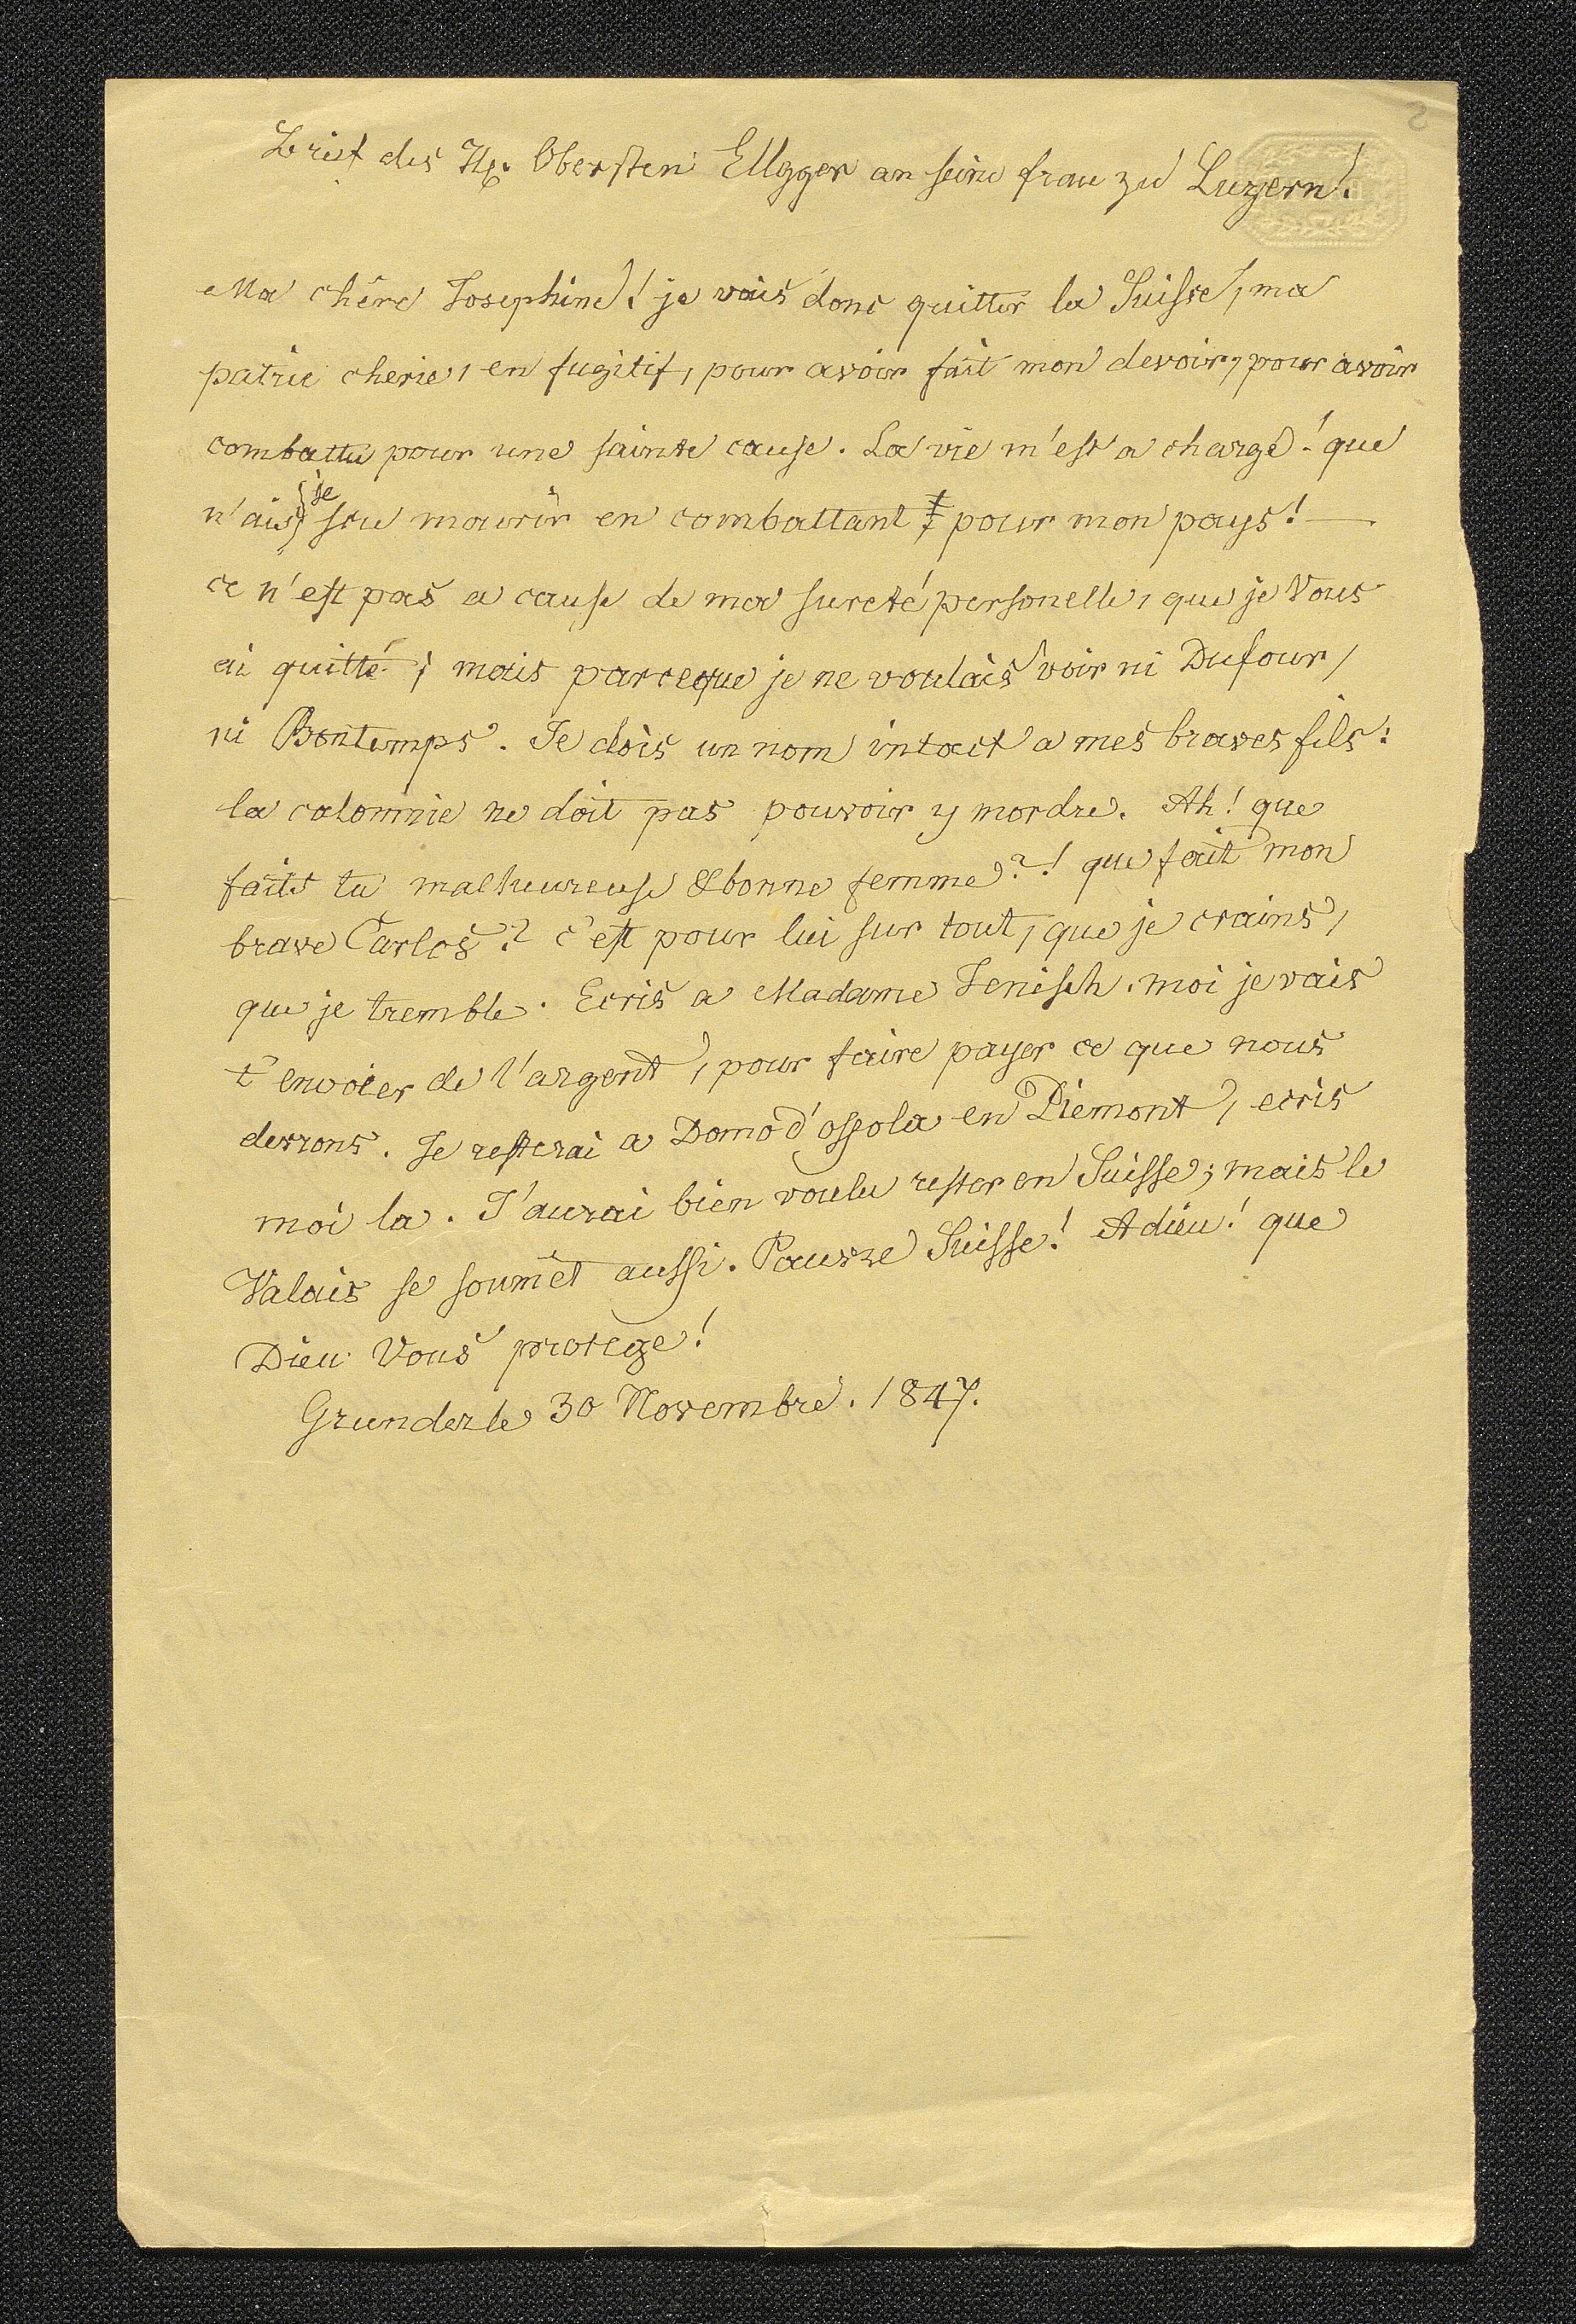 2
Brief des Hr. Obersten Ellgger an seine frau zu Luzern!
Ma chére Josephine! je vais donc quitter la Suisse, ma
patrie cherie, en fugitif, pour avoir fait mon devoir, pour avoir
combattu pour une sainte cause. La vie m'est a charge! que
n'ais je scu mourir en combattant pour mon pays! —
ce n'est pas a cause de ma sureté personelle, que je Vous
ai quitté; mais parceque je ne voulais voir ni Dufour,
ni Bontemps. Je dois un nom intact a mes braves fils:
la calomnie ne doit pas pouvoir y mordre. Ah! que
faits tu malheureuse & bonne femme?! que fait mon
brave Carlos? c'est pour lui sur tout, que je crains,
que je tremble. Ecris a Madame Jenisch. moi je vais
t'envoier de l'argent, pour faire payer ce que nous
devrons. Je resterai a Domo d'ossola en Piemont, ecris
moi la. J'aurai bien voulu rester en Suisse; mais le
Valais se soumet aussi. Pauvre Suisse! Adieu! que
Dieu Vous protege!
Grunder le 30 Novembre. 1847.